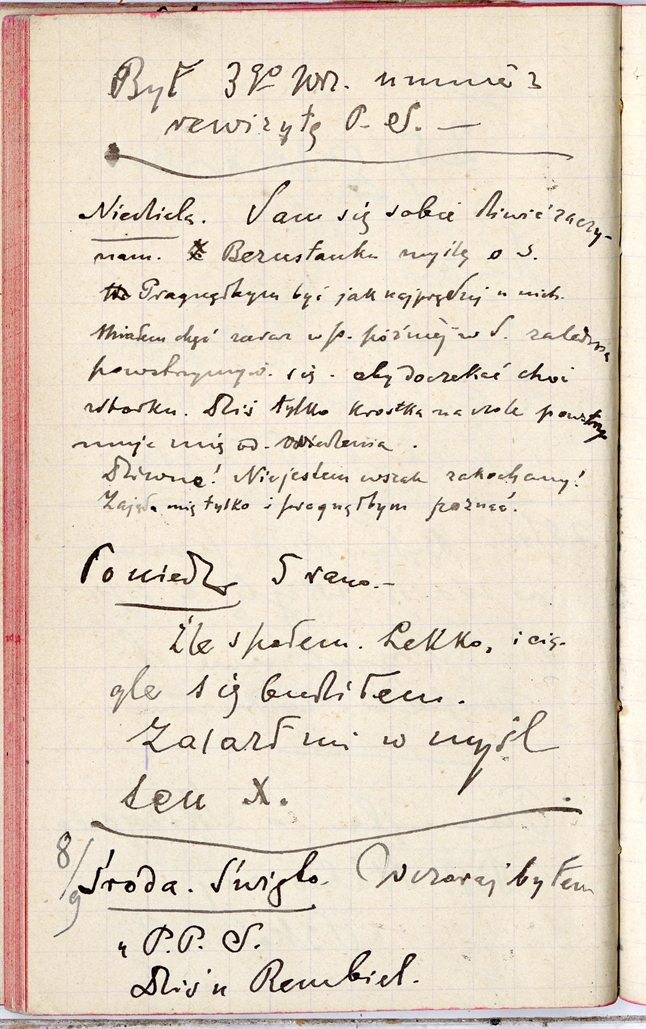 Był 3go Wrz. u mnie z
rewizytą P. S. —
Niedziela. Sam się sobie dziwić zaczy-
nam. Bezustanku myślę o S.
Pragnąłbym być jak najprędzej u nich.
Miałem chęć zaraz w p. później w S. zaledwie
powstrzymyw. się. aby doczekać choć
wtorku. Dziś tylko krostka na czole powstrzy
muje mię od. widzenia.
Dziwne! Nie jestem wszak zakochany!
Zajęła mię tylko i pragnąłbym poznać.
Poniedz. 5 rano.-
Źle spałem. Lekko, i cią-
gle się budziłem.
Zalazł mi w myśl
sen X.
8/9 Środa. Święto. Wczoraj byłem
u P.P. S.
Dziś u Rembiel.